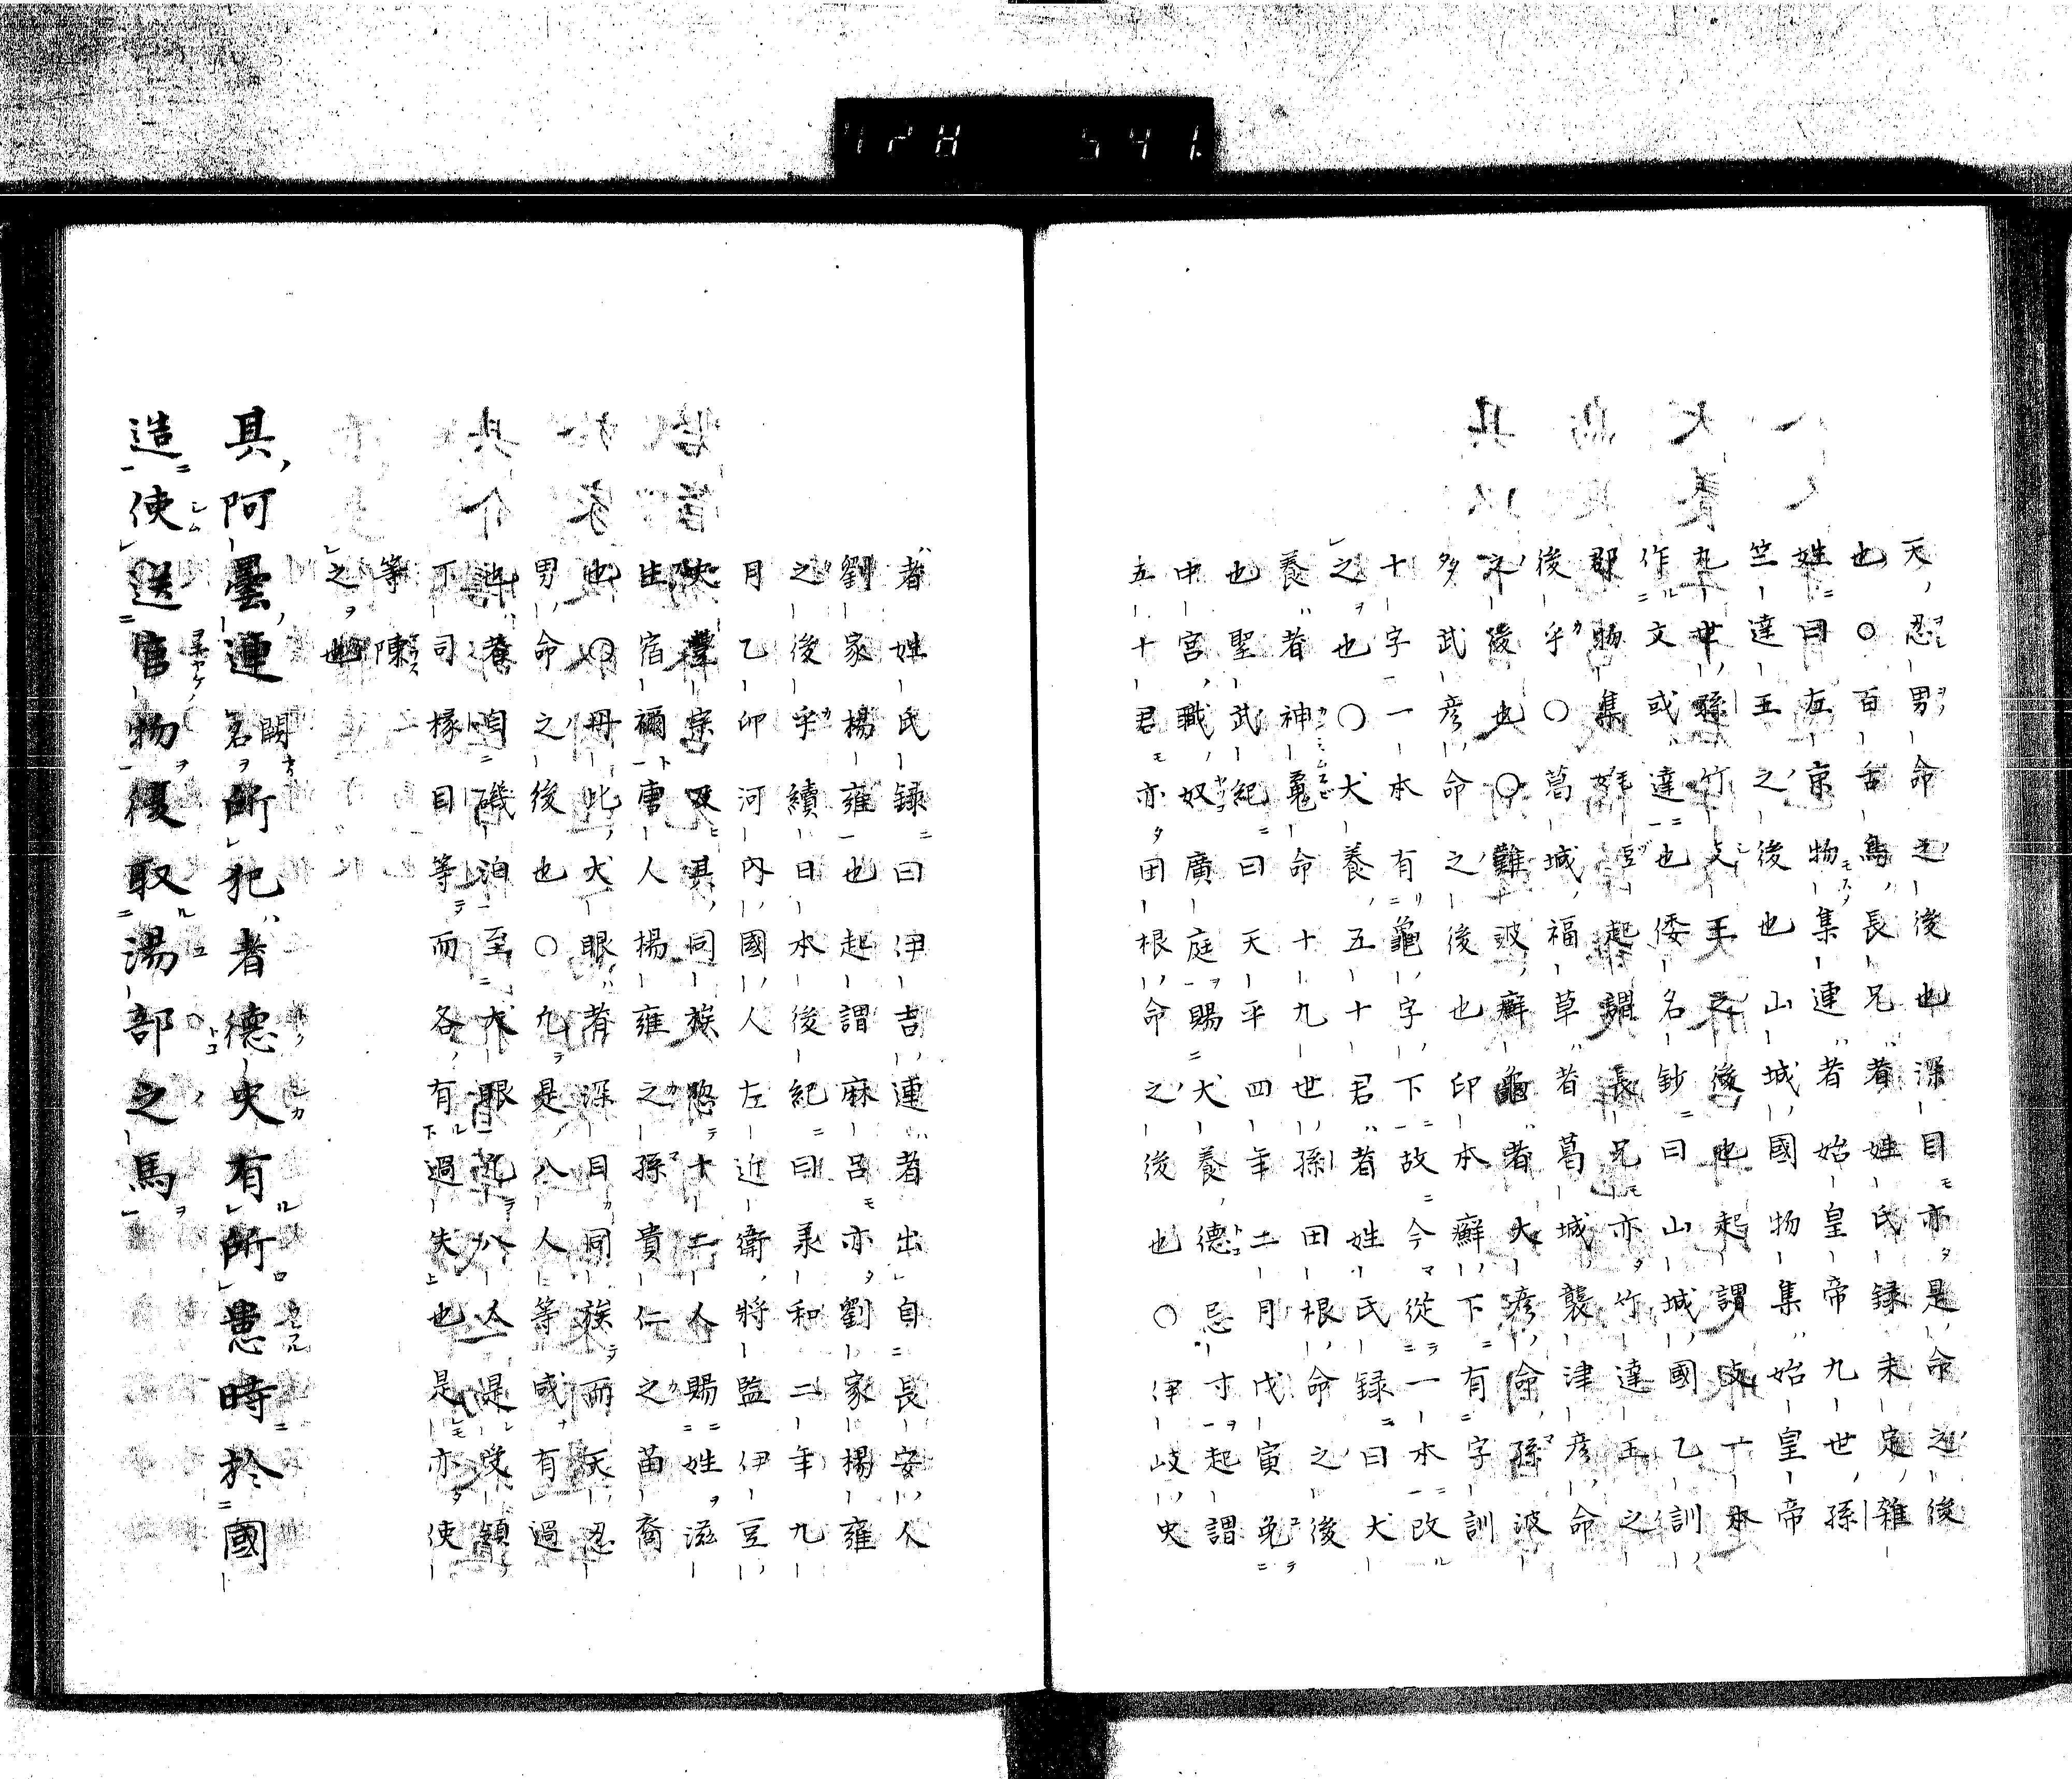 天忍男命之後也深目亦是命之後
也〇百舌鳥長兄者姓氏録未定雑
姓曰左京物集連者始皇帝九世孫
竺達王之後也山城國物集始皇帝
九世孫竹支王之後也起謂支一本
作文或達也倭名鈔曰山城國乙訓
郡物集起謂長兄亦竹達王之
後乎〇葛城福草者葛城襲津彦命
之後也〇難波癬龜者大彦命孫波
多武彦命之後也印本癬下有字訓
十字一本有龜字下故今從一本改
之也〇犬養五十君者姓氏録曰犬
養者神魂命十九世孫田根命之後
也聖武紀曰天平四年二月戊寅免
中宮職奴廣庭賜犬養德忌寸起謂
五十君亦田根命之後也〇伊岐史
者姓氏録曰伊吉連者出自長安人
劉家楊雍也起謂麻呂亦劉家楊雍
之後乎續日本後紀曰承和二年九
月乙卯河内國人左近衛將監伊豆
史豊宗及其同族惣十二人賜姓滋
生宿禰唐人楊雍之孫貴仁之苗裔
也〇丹比犬眼者深目同族而天忍
男命之後也〇九是八人等咸有過
也蓋自磯泊至犬眼近八人是受領
下司椽目等而各有過失也是亦使
等陳
之也
其阿曇連闕名所犯者德史有所患時於國
造使送官物復取湯部之馬
728 541